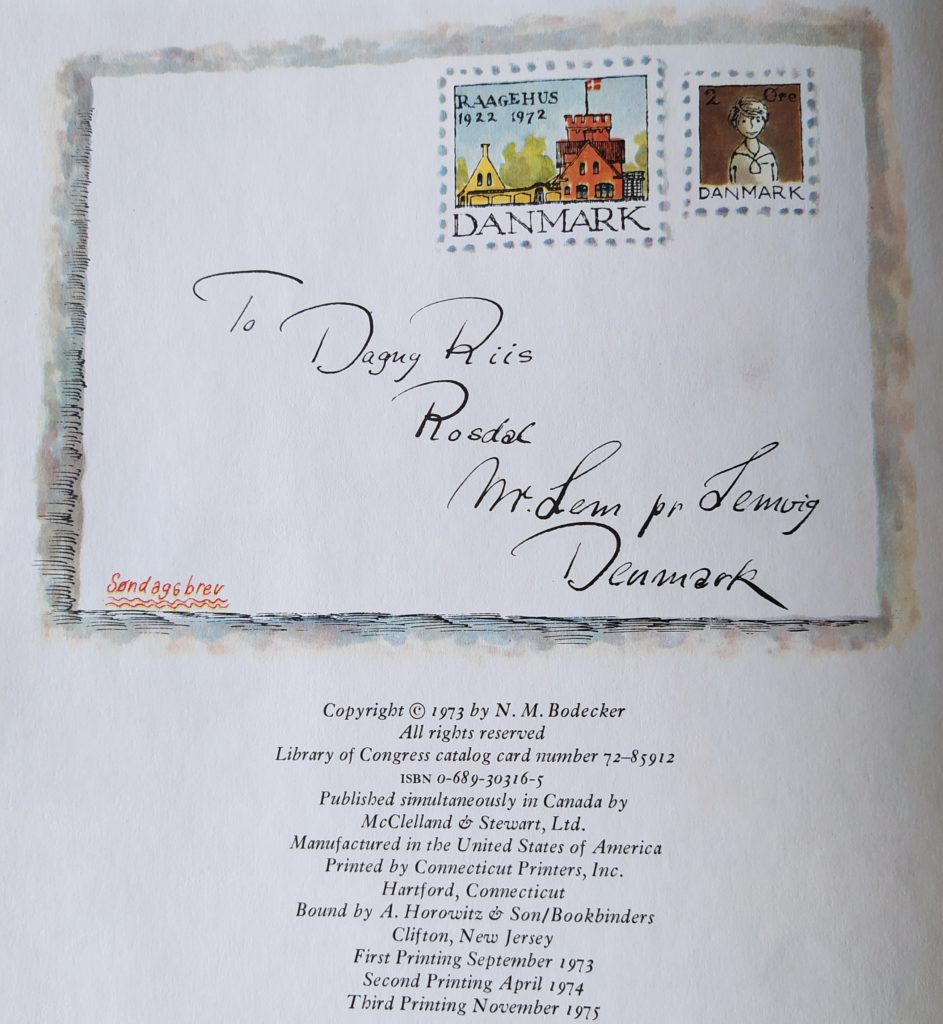 RAAGEHUS
1922 1972
DANMARK
2 Øre
DANMARK
To
Dagny Riis
Rosdal
Nr. Lem pr Lemvig
Denmark
Søndagsbrev
Copyright © 1973 by N. M. Bodecker
All rights reserved
Library of Congress catalog card number 72–85912
ISBN 0-689-30316-5
Published simultaneously in Canada by
McClelland & Stewart, Ltd.
Manufactured in the United States of America
Printed by Connecticut Printers, Inc.
Hartford, Connecticut
Bound by A. Horowitz & Son/Bookbinders
Clifton, New Jersey
First Printing September 1973
Second Printing April 1974
Third Printing November 1975